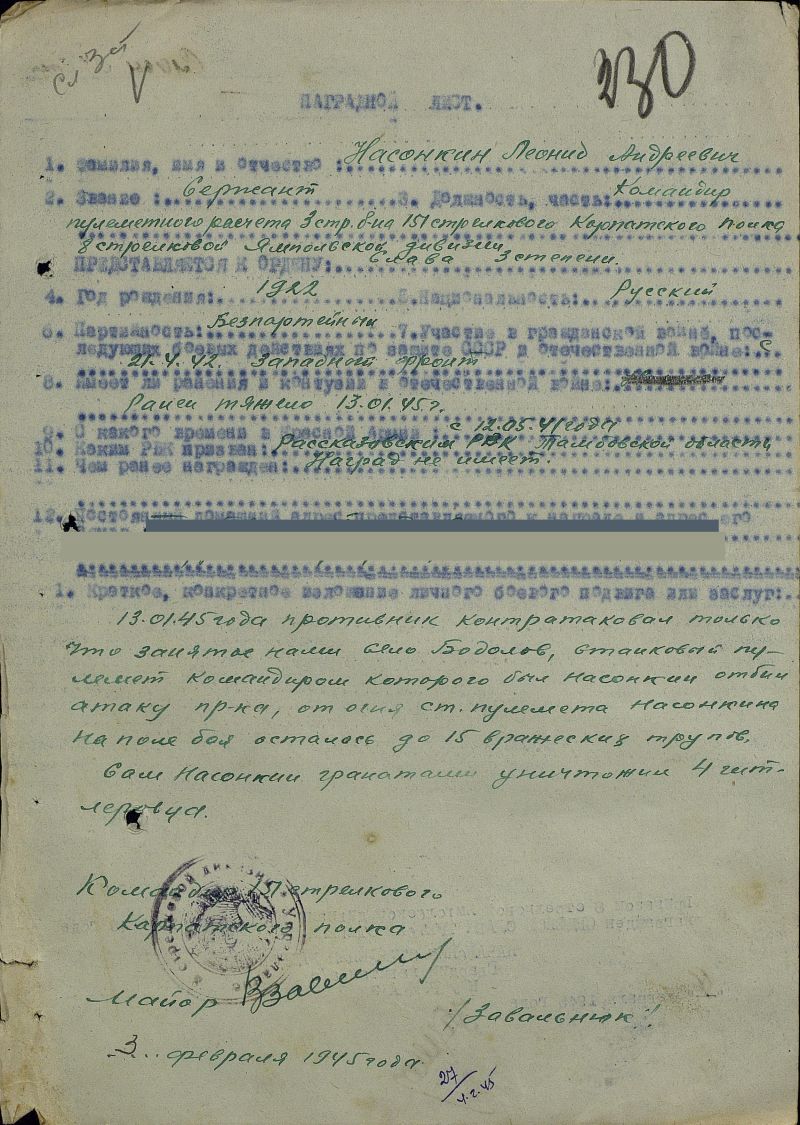 Сл 3ст
230
НАГРАДНОЙ ЛИСТ.
1. Фамилия, имя и отчество : Насонкин Леонид Андреевич
2. Звание : Сержант 3. Должность, часть: Командир
пулеметного расчета 3 стр. б-на 151 стрелкового Карпатского полка
8 стрелковой Ямпольской дивизии
ПРЕДСТАВЛЯЕТСЯ К ОРДЕНУ: Слава 3 степени.
4. Год рождения: 1922 5. Национальность: Русский
6. Партийность: Безпартейный 7. Участие в гражданской войне, пос-
ледующих боевых действиях по защите СССР и отечественной войне: с
21.4.42. Западной фронт
8. Имеет ли ранения и контузии в отечественной войне:
Ранен тяжело 13.01.45г.
9. С какого времени в Красной Армии : с 12.05.41 года
10. Каким РВК призван: Рассказовским РВК Тамбовской области
11. Чем ранее награжден: Наград не имеет.
12. Постоянный домашний адрес представляемого к награде и адрес его
1. Краткое, конкретное изложение личного боевого подвига или заслуг:
13.01.45 года противник контратаковал только
что занятое нами село Бодолов, станковый пу-
лемет командиром которого был Насонкин отбил
атаку пр-ка, от огня ст. пулемета Насонкина
на поле боя осталось до 15 вражеских трупов.
Сам Насонкин гранатами уничтожил 4 гит-
леровца.
Командир 151 стрелкового
Карпатского полка
Майор
/Завальнюк/
3 февраля 1945 года
27/4.2.45